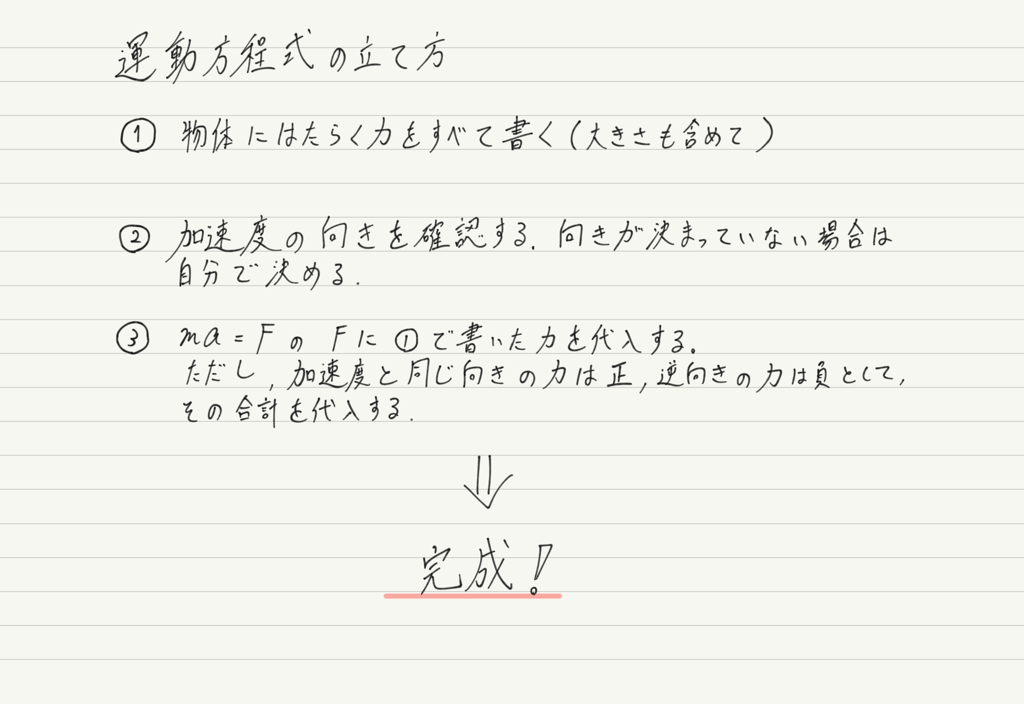 運動方程式の立て方
① 物体にはたらく力をすべて書く(大きさも含めて)
② 加速度の向きを確認する. 向きが決まっていない場合は
自分で決める.
③ ma = F の F に ① で書いた力を代入する.
ただし, 加速度と同じ向きの力は正, 逆向きの力は負として,
その合計を代入する.
⇓
完成!